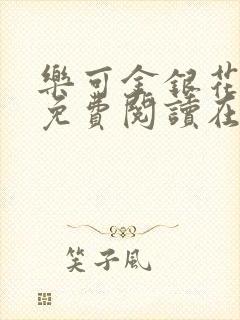 樂可金銀花
免費閱讀在
笑子風